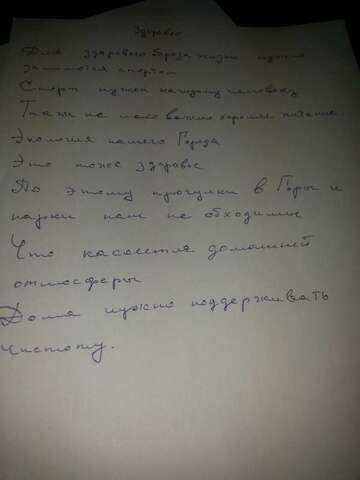 Здоровье
Для здорового образа жизни нужно
заниматся спортом
Спорт нужен каждому человеку
Также не мало важно хорошее питание
Экология нашего Города
Это тоже здоровье
По этому прогулки в Горы и
парки нам не обходимы
Что касается домашней
отмосферы
Дома нужно поддерживать
чистоту.